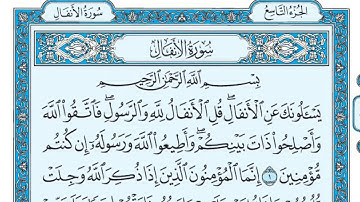 سُورَةُ الأَنفَالِ
الجُزْءُ التَّاسِعُ
سُورَةُ الأَنفَالِ
بِسْمِ اللَّهِ الرَّحْمَٰنِ الرَّحِيمِ
يَسْـَٔلُونَكَ عَنِ ٱلْأَنفَالِ ۖ قُلِ ٱلْأَنفَالُ لِلَّهِ وَٱلرَّسُولِ ۖ فَٱتَّقُوا۟ ٱللَّهَ
وَأَصْلِحُوا۟ ذَاتَ بَيْنِكُمْ ۖ وَأَطِيعُوا۟ ٱللَّهَ وَرَسُولَهُۥٓ إِن كُنتُم
مُّؤْمِنِينَ ١ إِنَّمَا ٱلْمُؤْمِنُونَ ٱلَّذِينَ إِذَا ذُكِرَ ٱللَّهُ وَجِلَتْ